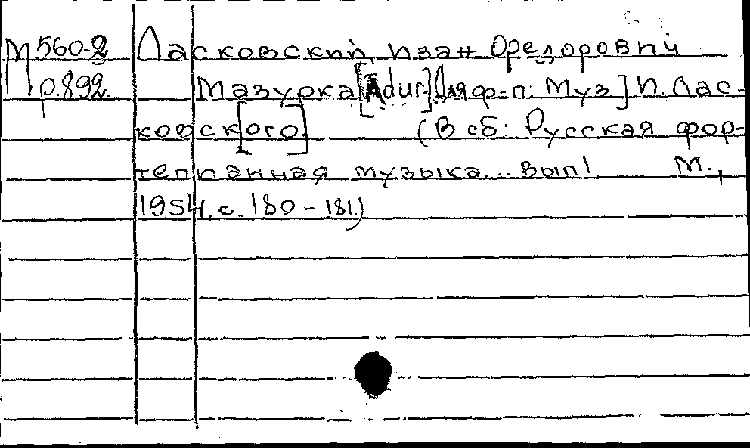 М 560-2 Ласковский Иван Федорович
р.892. Мазурка [Adur.] [Для ф-п: Муз] И. Лас-
ковск[ого] (В сб: Русская фор-
тепианная музыка... вып 1 М.,
1954, с. 180-181.)